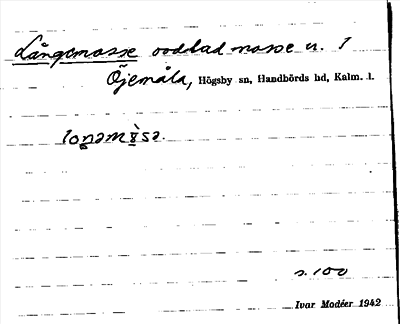 Långemosse oodlad mosse u. 1
Öjemåla, Högsby sn, Handbörds hd, Kalm. l.
s. 100
Ivar Modéer 1942